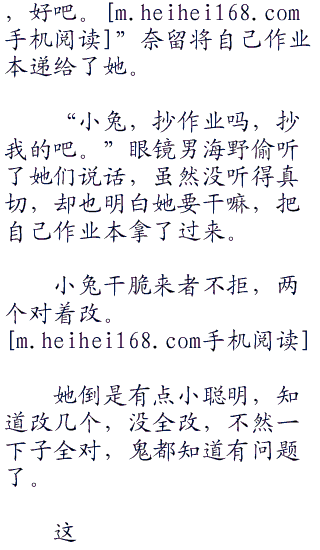 ，好吧。[m.heihei168.com
手机阅读]”奈留将自己作业
本递给了她。
“小兔，抄作业吗，抄
我的吧。”眼镜男海野偷听
了她们说话，虽然没听得真
切，却也明白她要干嘛，把
自己作业本拿了过来。
小兔干脆来者不拒，两
个对着改。
[m.heihei168.com手机阅读]
她倒是有点小聪明，知
道改几个，没全改，不然一
下子全对，鬼都知道有问题
了。
这